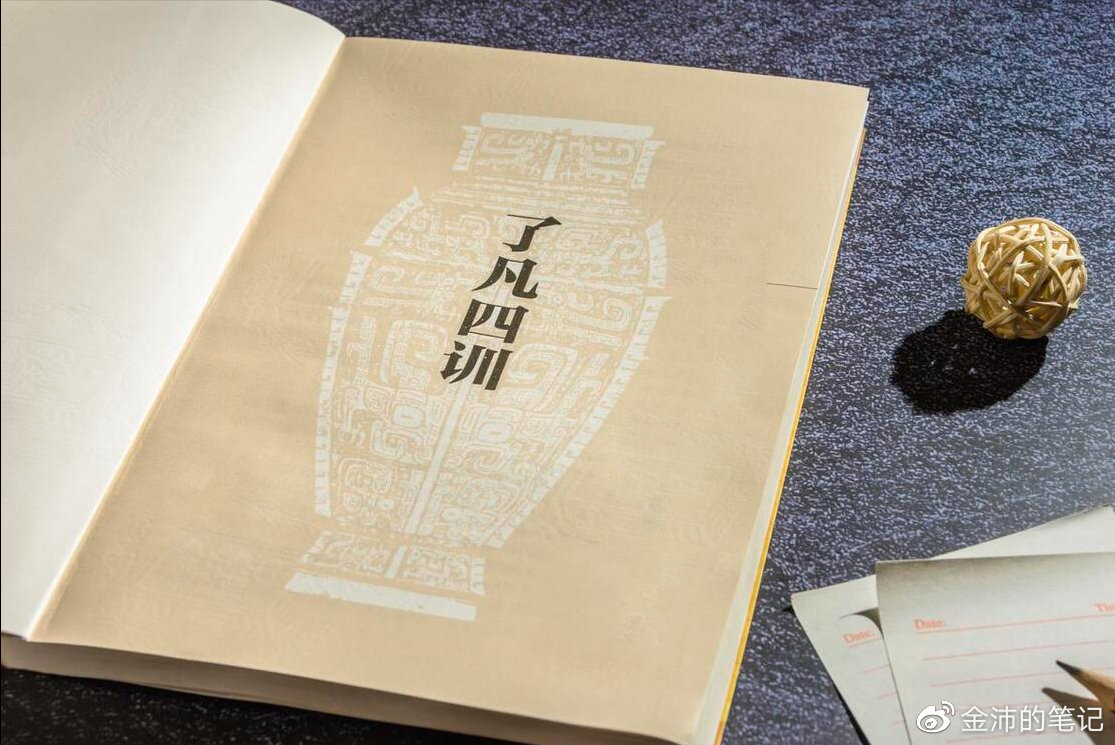 了凡四训
Date:
Date:
金沛的笔记